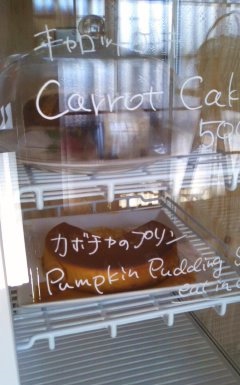 キャロット
Carrot Cak
50
カボチャのプリン
Pumpkin Pudding
eat in